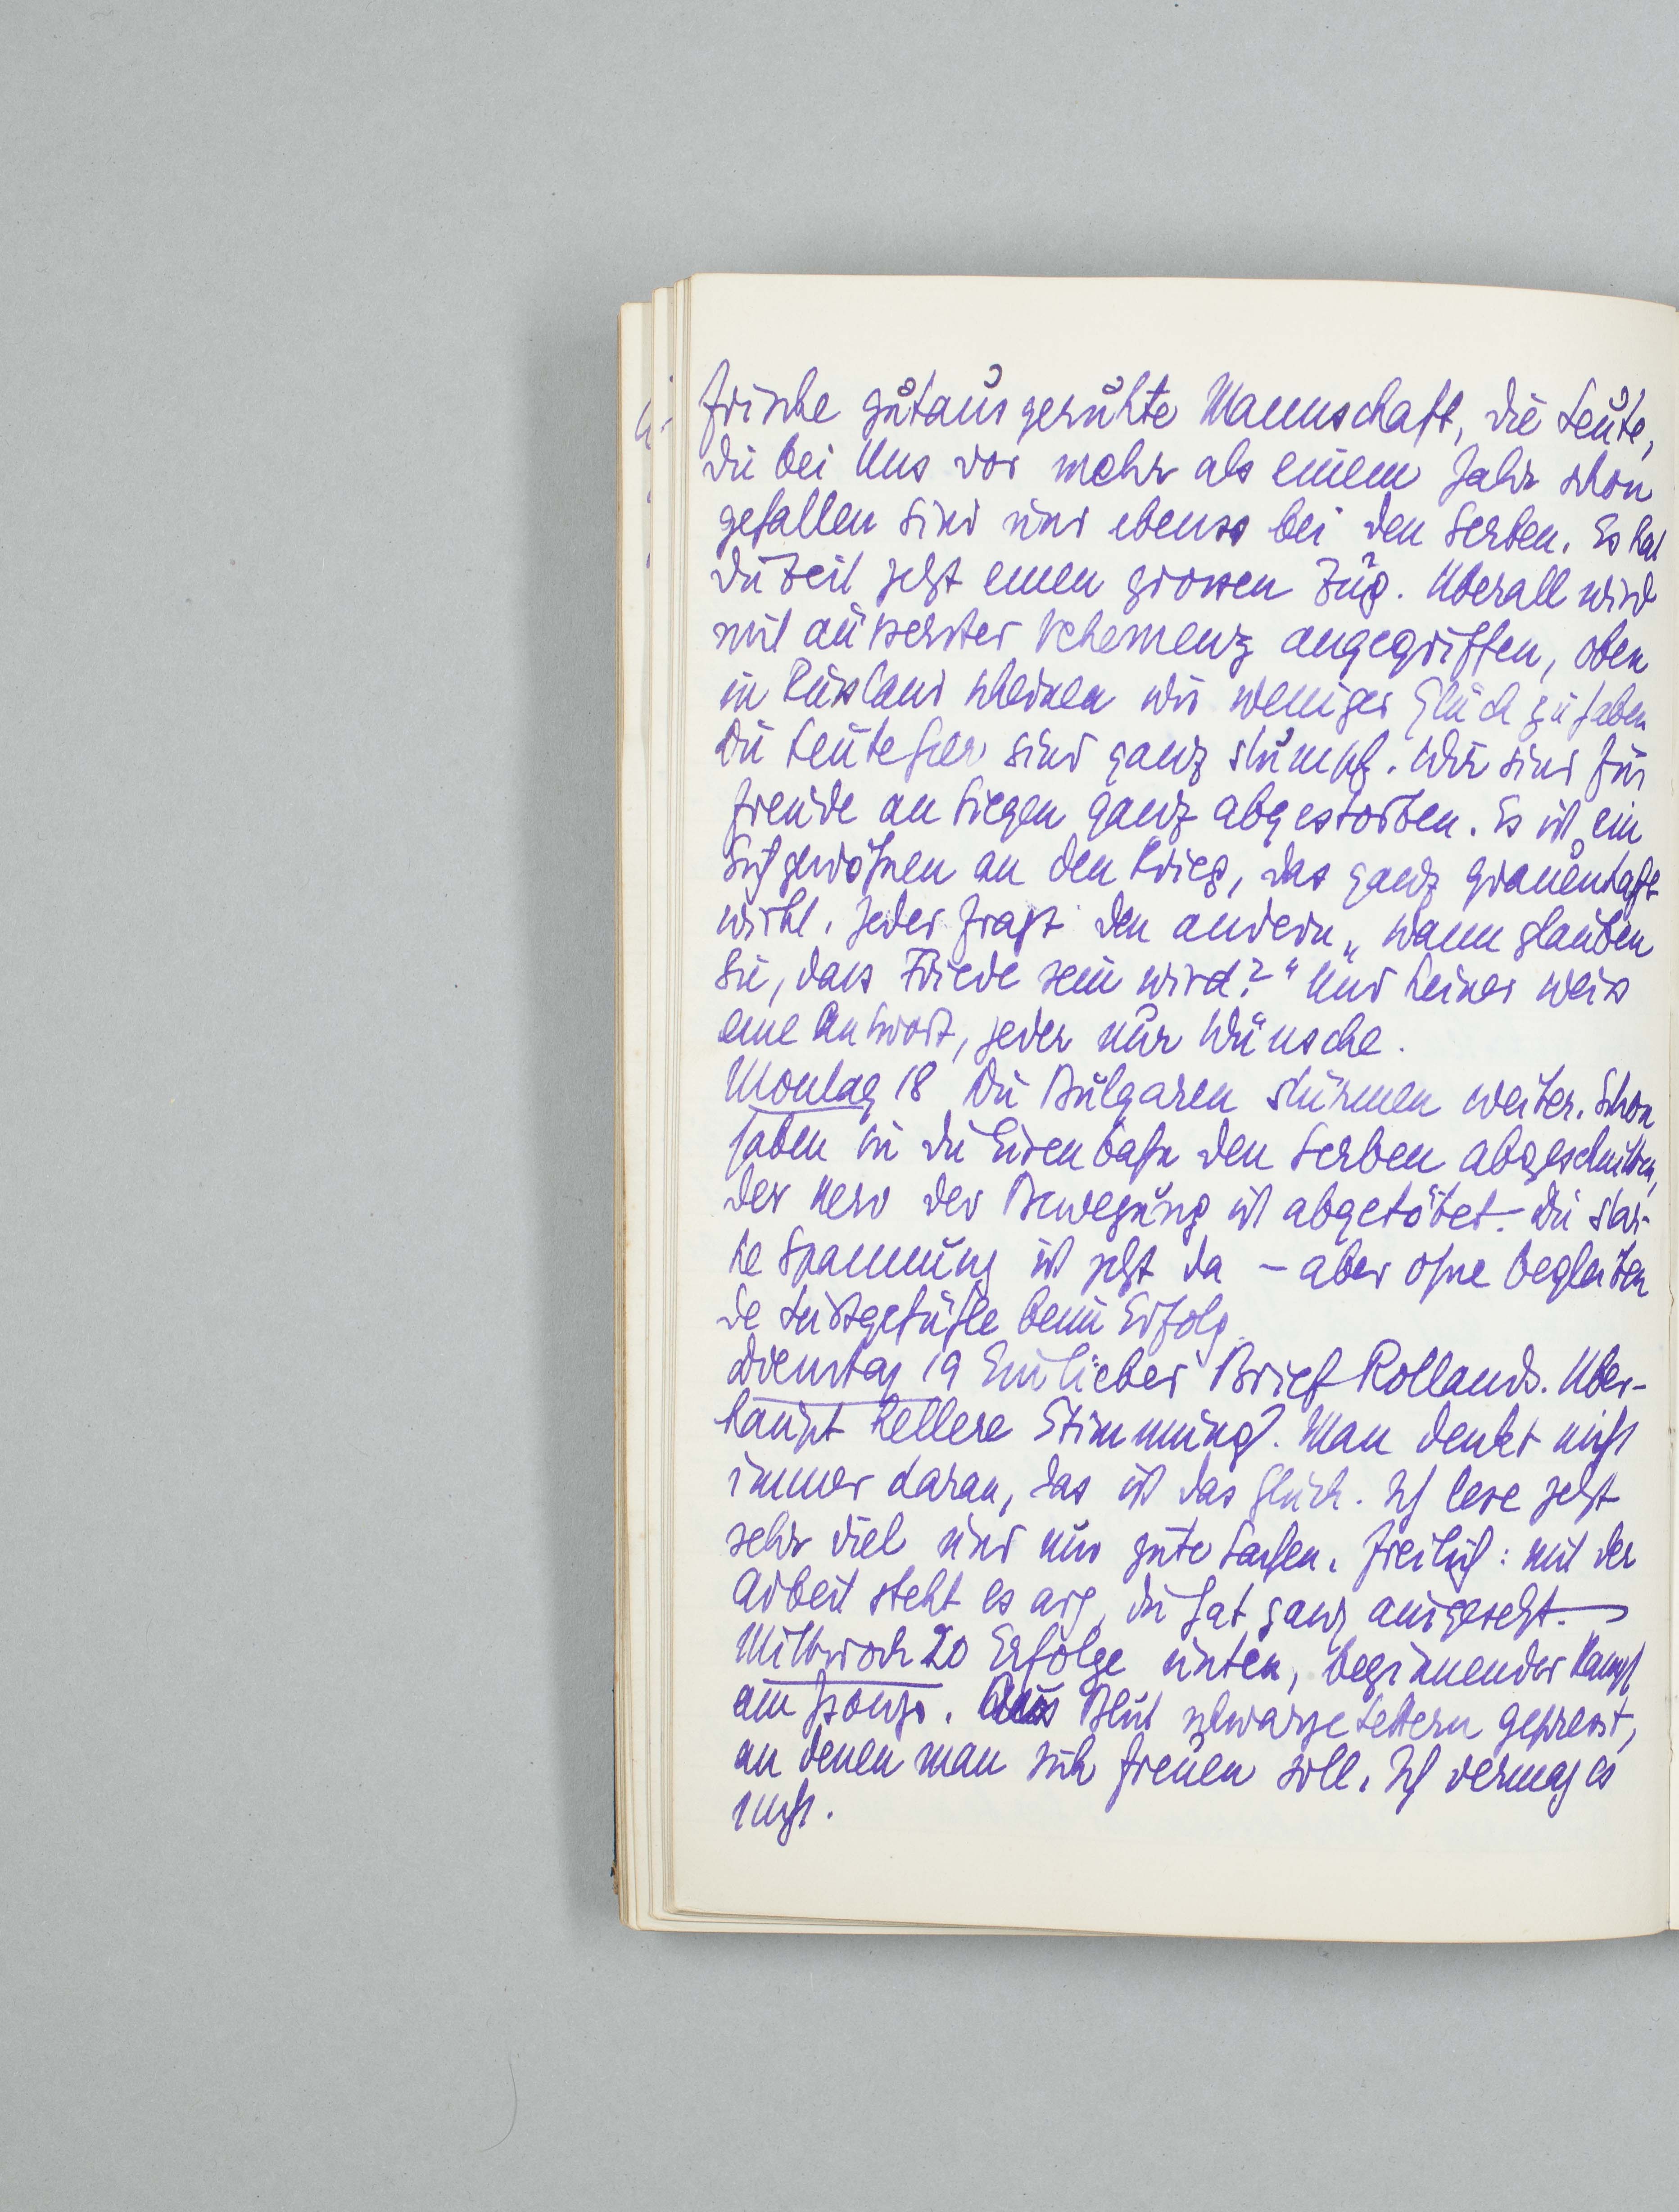 frische gutausgeruhte Mannschaft, die Leute,
die bei Uns vor mehr als einem Jahr schon
gefallen sind und ebenso bei den Serben. Es hat
die Zeit jetzt einen grossen Zug. Uberall wird
mit äusserster Vehemenz angegriffen, oben
in Russland scheinen wir weniger Glück zu haben
Die Leute hier sind ganz stumpf. Wir sind für
Freude an Siegen ganz abgestorben. Es ist ein
Sichgewöhnen an den Krieg, das ganz grauenhaft
wirkt. Jeder fragt den andern „wann glauben
Sie, dass Friede sein wird?“ Und keiner weis
eine Antwort, jeder nur Wünsche.
Montag 18 Die Bulgaren stürmen weiter. Schon
haben sie die Eisenbahn den Serben abgeschnitten,
der Nerv der Bewegung ist abgetötet. Die star-
ke Spannung ist jetzt da – aber ohne begleiten
de Lustgefühle beim Erfolg.
Dienstag 19 Ein lieber Brief Rollands. Uber-
haupt hellere Stimmung. Man denkt nicht
immer daran, das ist das Glück. Ich lese jetzt
sehr viel und nur gute Sachen. Freilich: mit der
Arbeit steht es arg, die hat ganz ausgesetzt. –
Mittwoch 20 Erfolge unten, beginnender Kampf
am Isonzo. Aus Blut schwarze Lettern gepresst,
an denen man sich freuen soll. Ich vermag es
nicht.